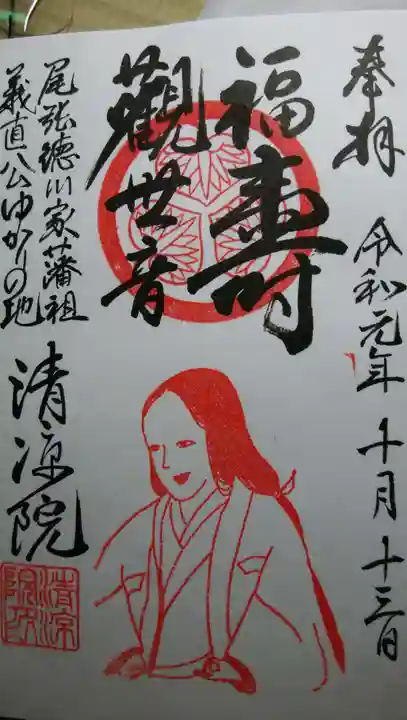 奉拝
令和元年十月十三日
福壽
觀世音
尾張徳川家藩祖
義直公ゆかりの地
清涼院